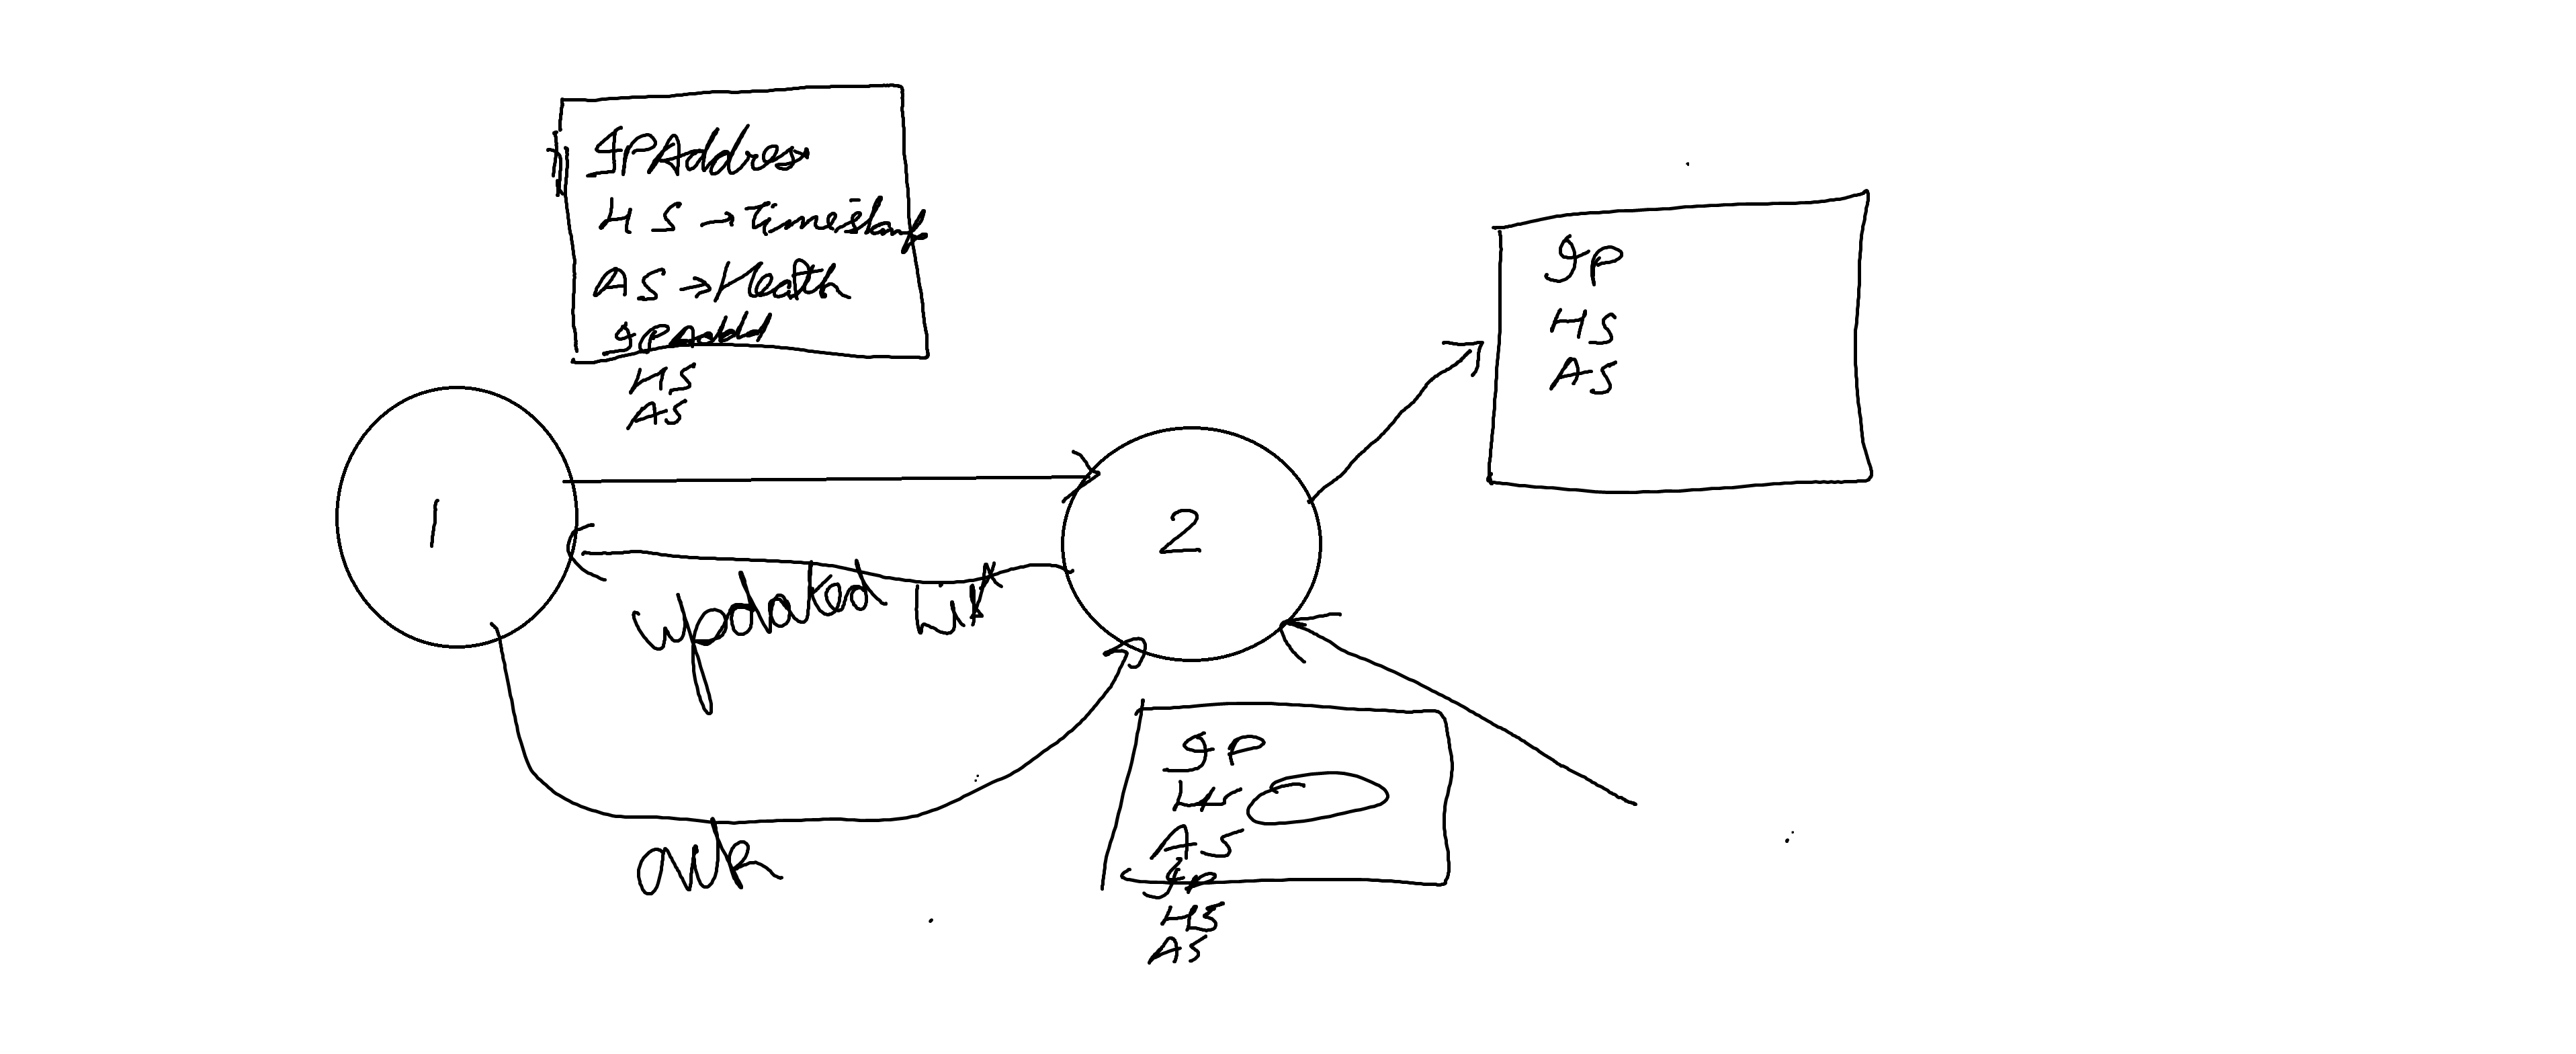 IPAddress
HS → Timestamp
AS → Health
IPAdd
HS
AS
IP
HS
AS
1
2
updated List
ack
IP
HS
AS
IP
HS
AS